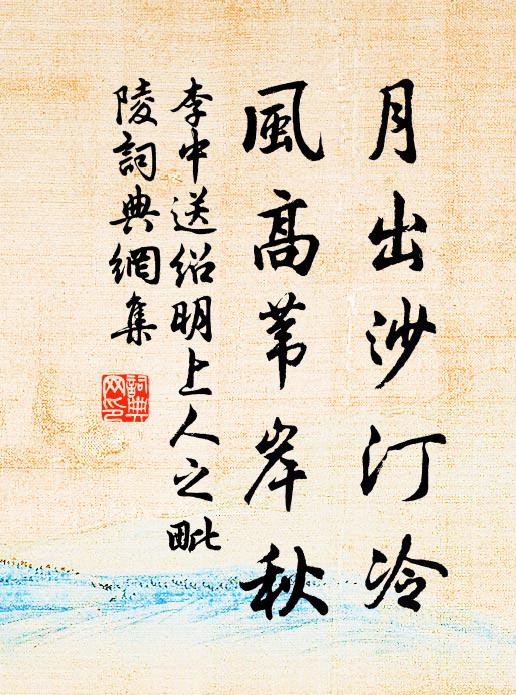 月出沙汀冷
風高苇岸秋
李中送绍明上人之毗
陵詞典網集
詞典
网印